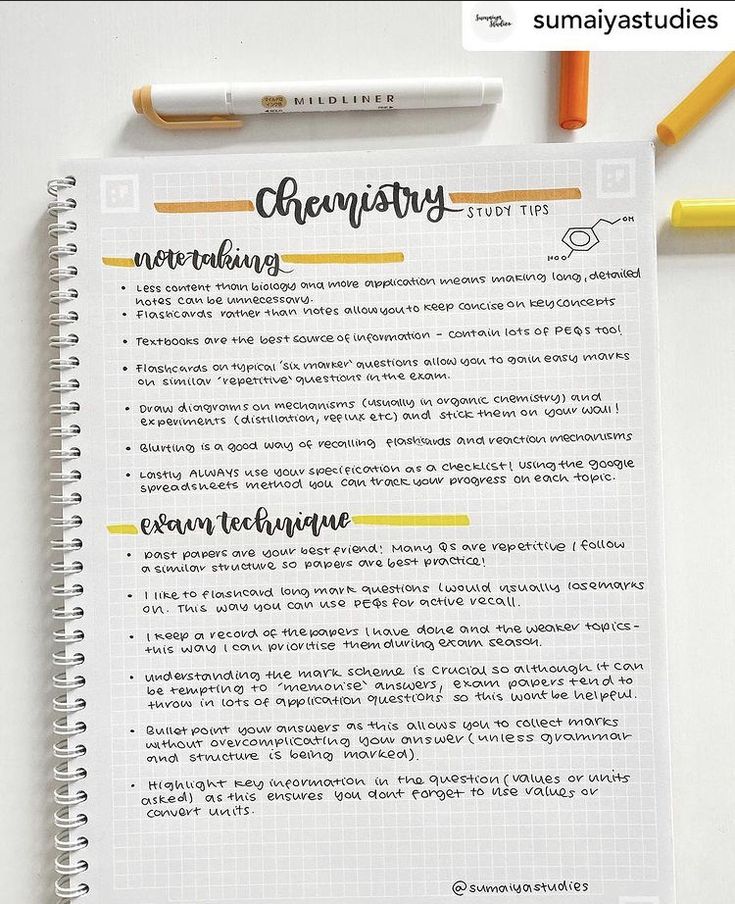 sumaiyastudies
Sumaiya
Studies
MILDLINER
Chemistry
STUDY TIPS
OH
HO
note-taking
• Less content than biology and more application means making long, detailed
notes can be unnecessary.
• Flashcards rather than notes allow you to keep concise on key concepts
• Textbooks are the best source of information - contain lots of PEQs too!
• Flashcards on typical 'six marker' questions allow you to gain easy marks
on similar 'repetitive' questions in the exam.
• Draw diagrams on mechanisms (usually in organic chemistry) and
experiments (distillation, reflux etc) and stick them on your wall!
• Blurting is a good way of recalling flashcards and reaction mechanisms
• Lastly ALWAYS use your specification as a checklist! Using the google
spreadsheets method you can track your progress on each topic.
exam technique
• past papers are your best friend! Many Qs are repetitive / follow
a similar structure so papers are best practice!
• I like to flashcard long mark questions I would usually lose marks
on. This way you can use PEQs for active recall.
• I keep a record of the papers I have done and the weaker topics-
this way I can prioritise them during exam season.
• understanding the mark scheme is crucial so although it can
be tempting to 'memorise' answers, exam papers tend to
throw in lots of application questions so this wont be helpful.
• Bullet point your answers as this allows you to collect marks
without overcomplicating your answer (unless grammar
and structure is being marked).
• Highlight key information in the question (values or units
asked) as this ensures you dont forget to use values or
convert units.
@sumaiyastudies